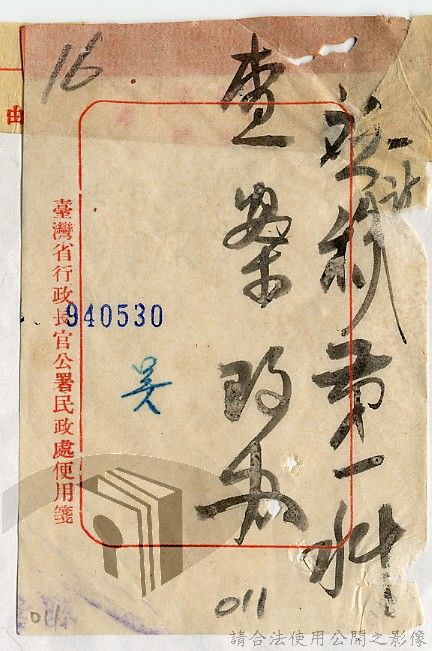 16
移第一科
查案办
臺灣省行政長官公署民政處便用箋
940530
吴
011
011
請合法使用公開之影像